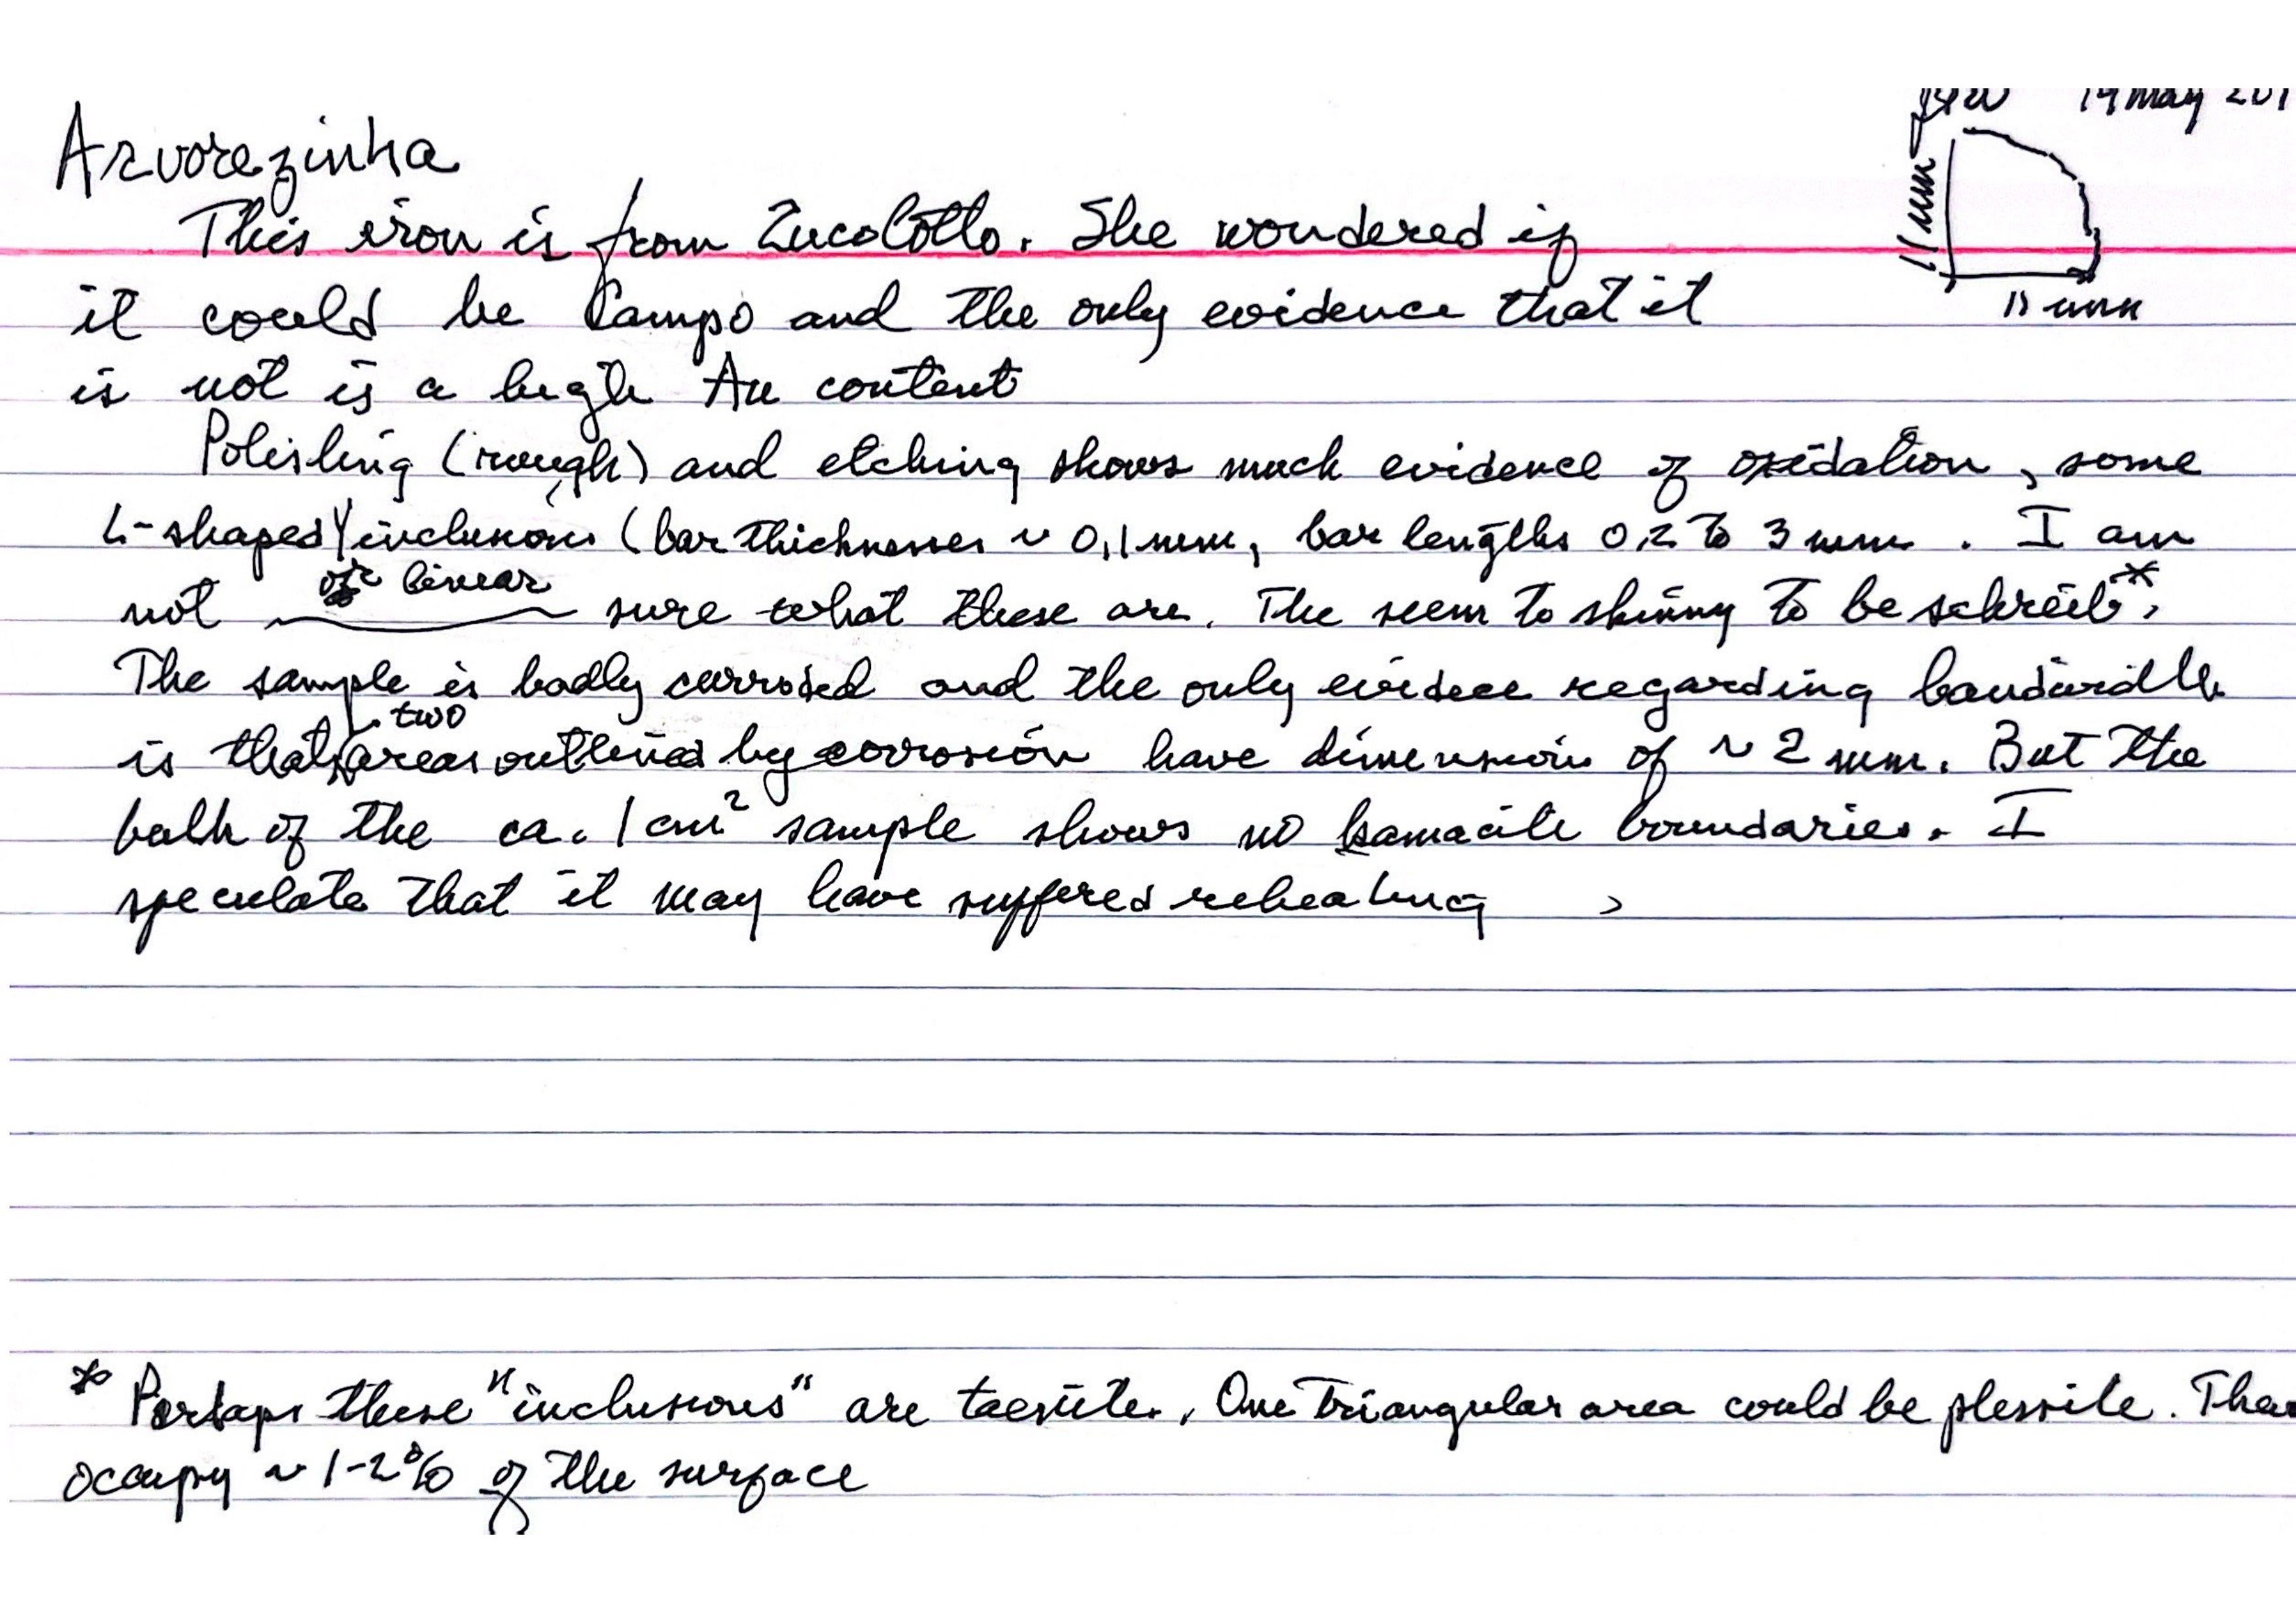 JTW 14 May 201
Arvorezinha
11 mm
This iron is from Zucolotto. She wondered if
it could be Campo and the only evidence that it
11 mm
is not is a high Au content
Polishing (rough) and etching shows much evidence of oxidation, some
L-shaped inclusions (bar thicknesses ~ 0,1 mm, bar lengths 0.2 to 3 mm. I am
or linear
not sure what these are. The seem to skinny to be schreib*.
The sample is badly corroded and the only evidece regarding bandwidth
two
is that areas outlined by corrosion have dimension of ~ 2 mm. But the
bulk of the ca. 1 cm² sample shows no kamacite boundaries. I
speculate that it may have suffered reheating
* Perhaps these "inclusions" are taenite. One triangular area could be plessite. These
occupy ~ 1-2% of the surface